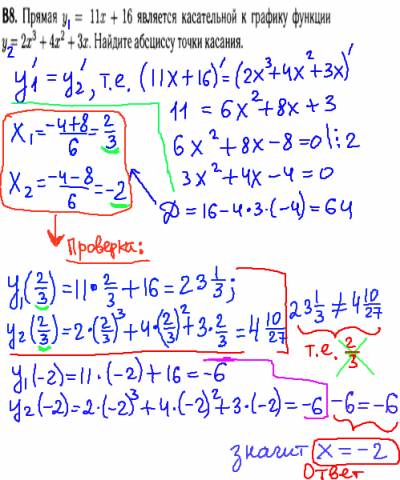 В8. Прямая y₁ = 11x + 16 является касательной к графику функции
y₂ = 2x³ + 4x² + 3x. Найдите абсциссу точки касания.
y₁′ = y₂′, т.е. (11x+16)′ = (2x³+4x²+3x)′
11 = 6x²+8x+3
6x²+8x-8=0 |:2
3x²+4x-4=0
Д = 16-4·3·(-4)=64
x₁ = (-4+8)/6 = 2/3
x₂ = (-4-8)/6 = -2
Проверка:
y₁(2/3) = 11·2/3 + 16 = 23 1/3;
y₂(2/3) = 2·(2/3)³ + 4·(2/3)² + 3·2/3 = 4 10/27
23 1/3 ≠ 4 10/27
т.е. 2/3
y₁(-2) = 11·(-2)+16 = -6
y₂(-2) = 2·(-2)³+4·(-2)²+3·(-2) = -6
-6 = -6
значит x = -2
Ответ